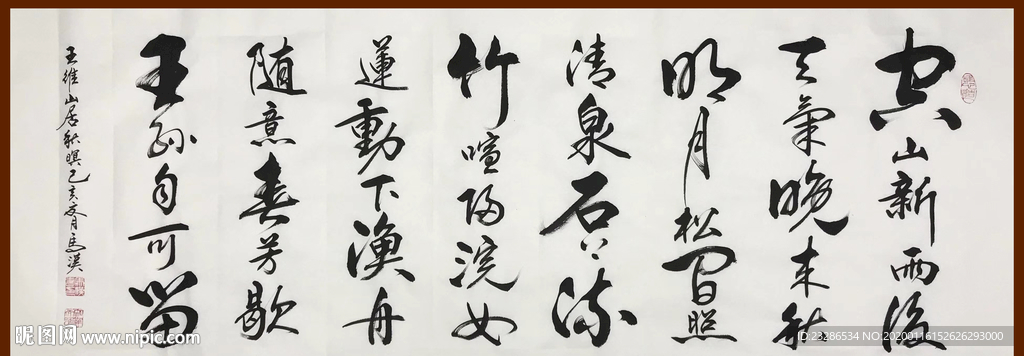 空山新雨後
天氣晚来秋
明月松间照
清泉石上流
竹喧歸浣女
蓮動下漁舟
随意春芳歇
王孫自可留
王維山居秋暝己亥夏月馬
昵图网 www.nipic.com
ID:23286534 NO:20200116152626293000